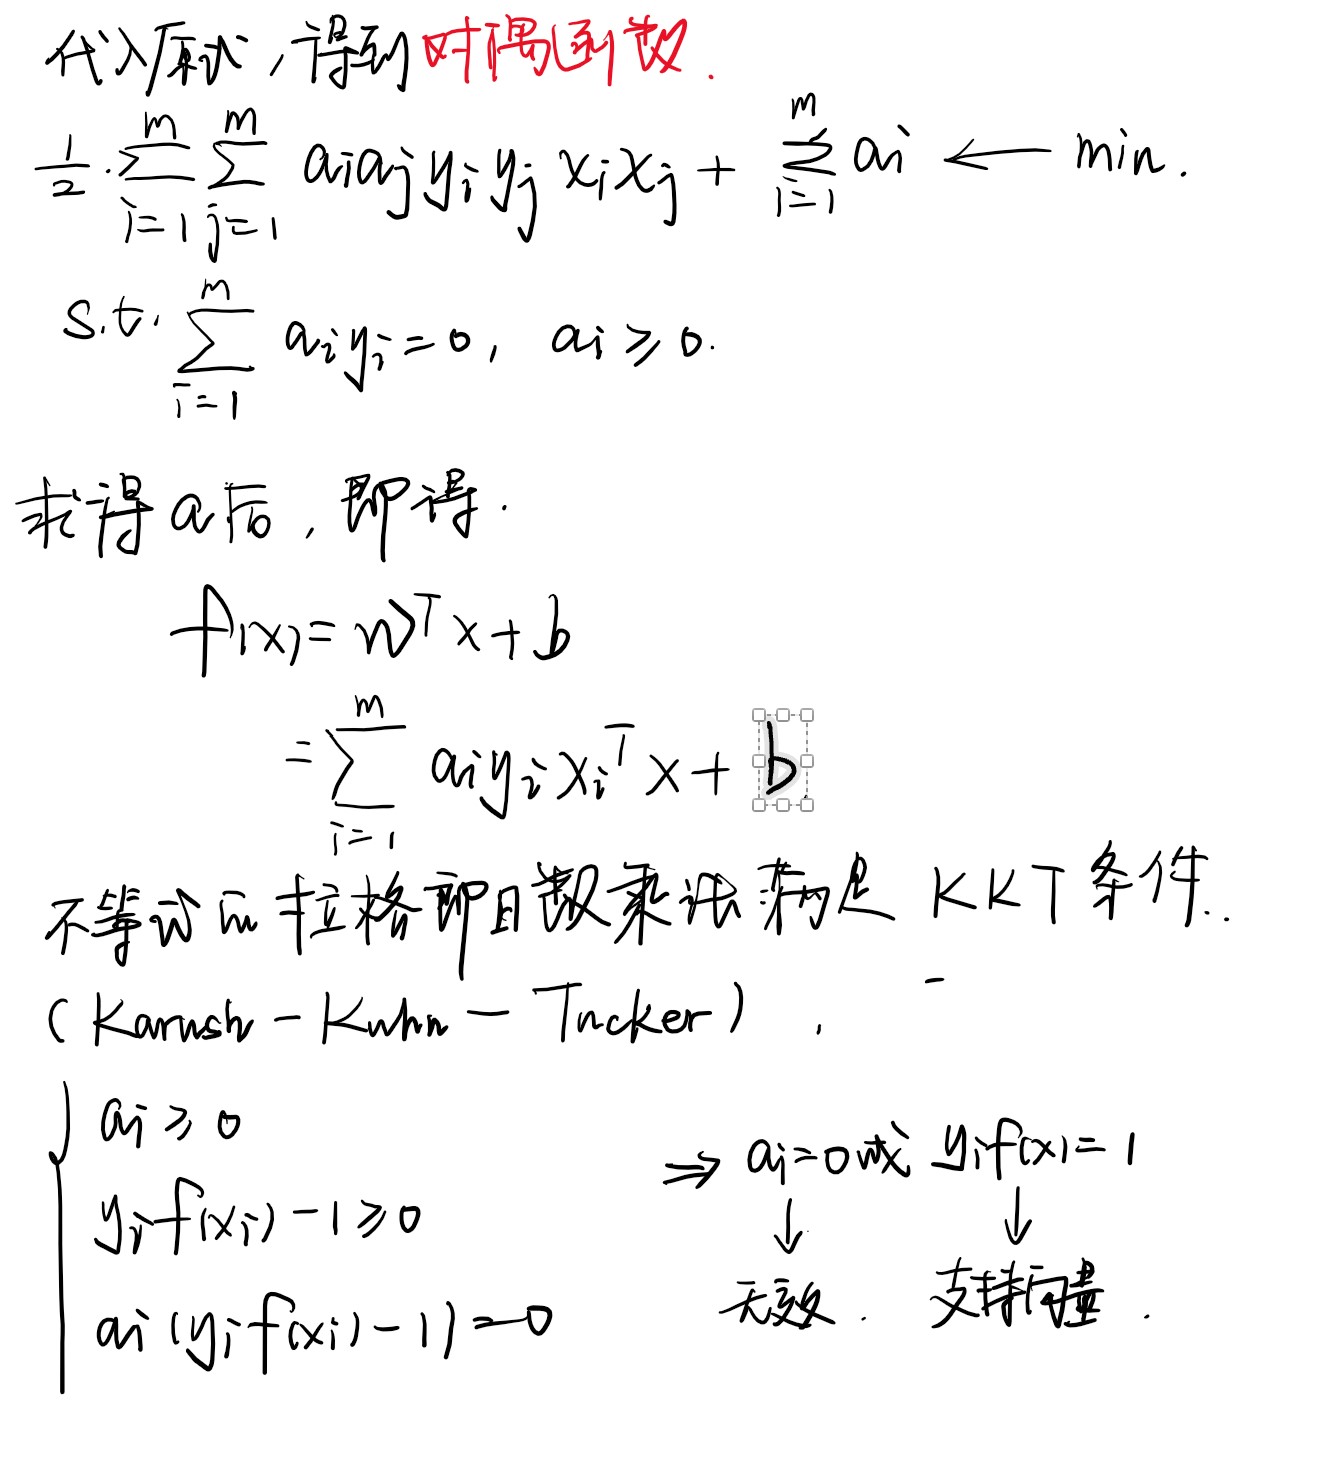 代入原式，得到对偶函数.
1/2 · ∑_{i=1}^{m} ∑_{j=1}^{m} aᵢaⱼyᵢyⱼxᵢxⱼ + ∑_{i=1}^{m} aᵢ ← min.
s.t. ∑_{i=1}^{m} aᵢyᵢ = 0, aᵢ ≥ 0.
求得a后，即得.
f(x) = wᵀx + b
= ∑_{i=1}^{m} aᵢyᵢxᵢᵀx + b
不等式的拉格朗日数乘法满足 KKT条件..
(Karush - Kuhn - Tucker) ,
aᵢ ≥ 0
yᵢf(xᵢ) - 1 ≥ 0
aᵢ(yᵢf(xᵢ) - 1) = 0
⇒ aᵢ = 0 或 yᵢf(x) = 1
↓ ↓
无效. 支持向量.